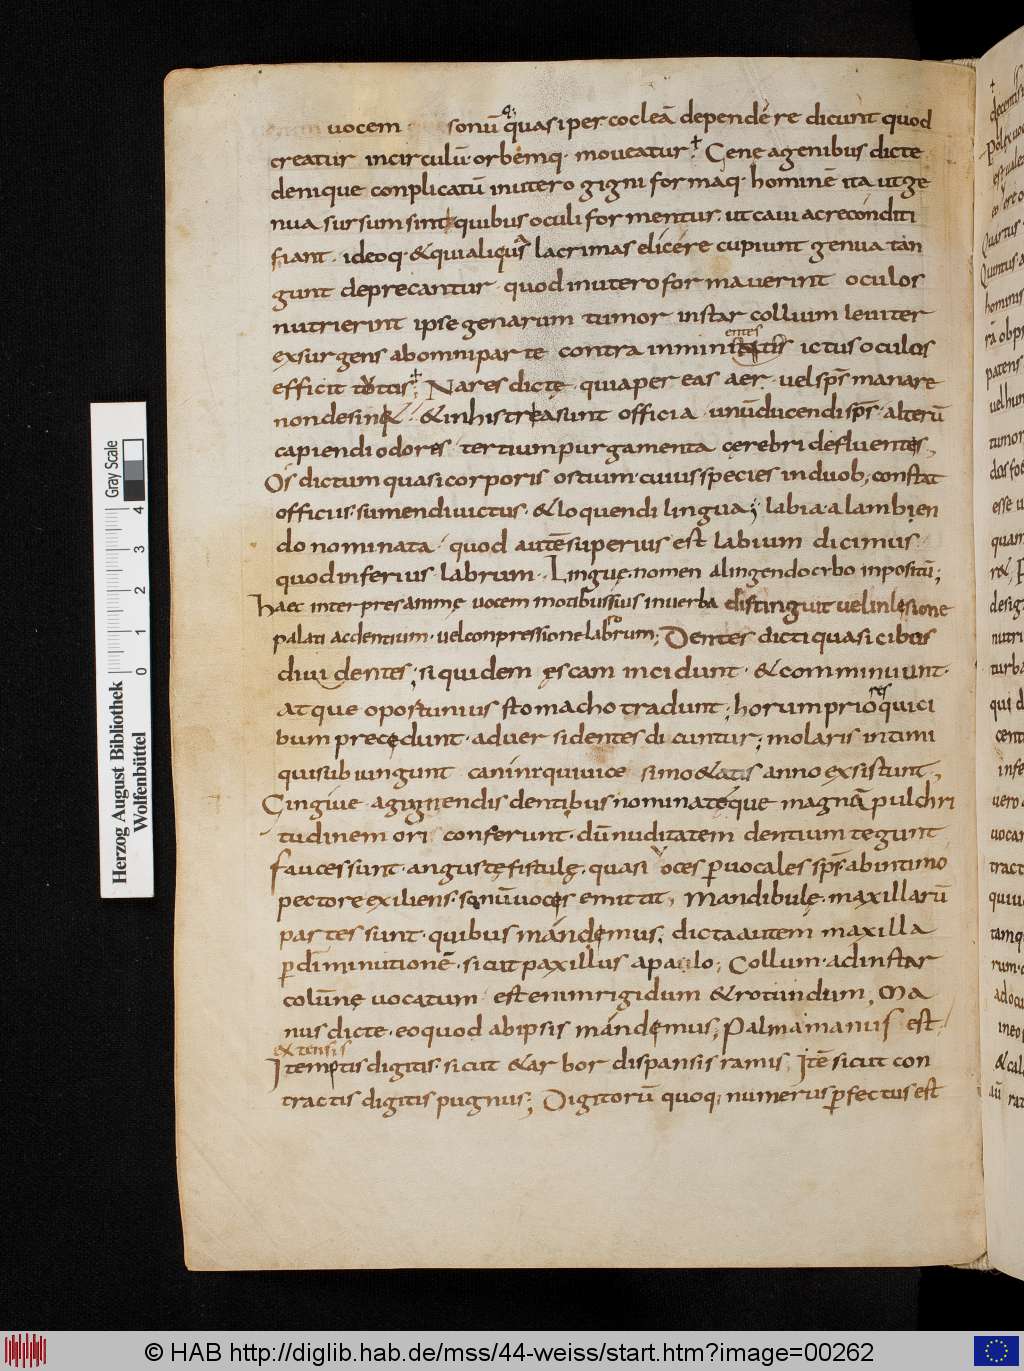 vocem sonū quasi per cocleā dependere dicunt quod
creatur in circulū· orbemq· moveatur; Genę a genibus dictę
denique conplicatū in utero gigni formaq· hominē ita ut ge
nua sursum sint quibus oculi formentur· ut cavi ac reconditi
fiant· ideoq· & qui aliqus a lacrimas elicere cupiunt genua tan
gunt deprecantur· quod in utero formaverint oculos
nutrierint ipse genarum tumor instar collium leviter
exsurgens ab omni parte contra inmini entes ictus oculos
efficit totos; Nares dictę· quia per eas aer· vel sp̄s manare
non desin& · & in his trea sunt officia· unū ducendi sp̄s· alterū
capiendi odores· tertium purgamenta cerebri defluentes,
Os dictum quasi corporis ostium· cuius species in duob; constat
officiis· sumendi victus· & loquendi lingua; labia a lambien
do nominata· quod autē superius est labium dicimus
quod inferius labrum· Linguę nomen a lingendo cybo inpositū;
haec interpres animę vocem motibus suis in verba distinguit vel inlesione
palati ac dentium· vel conpressione labrorum; Dentes dicti quasi cibos
dividentes; siquidem ęscam incidunt· & comminuunt·
atque oportunius stomacho tradunt; horum priores qui ci
bum precędunt· adversi dentes dicuntur; molaris intimi
qui subiungunt canini qui vice simo &atis anno exsistunt,
Gingive a gignendis dentibus nominatę que magnā pulchri
tudinem ori conferunt· dū nuditatem dentium tegunt
fauces sunt· angustę fistulę· quasi voces p̄ vocales sp̄s ab intimo
pectore exiliens· sonū vocis emittit, Mandibulę· maxillarū
partes sunt· quibus mandemus; dicta autem maxilla
p̄ diminutionē· sicut paxillus a palo; Collum· ad instar
colūnę vocatum· est enim rigidum & rotundum, Ma
nus dictę· eo quod ab ipsis mandemus; Palma manus est
extensis
Item ptis digitis· sicut & arbor dispansis ramis, Itē sicut con
tractis digitis pugnus; Digitorū quoq; numerus p̄fectus est
Herzog August Bibliothek
Wolfenbüttel
Gray Scale
0 1 2 3 4
© HAB http://diglib.hab.de/mss/44-weiss/start.htm?image=00262